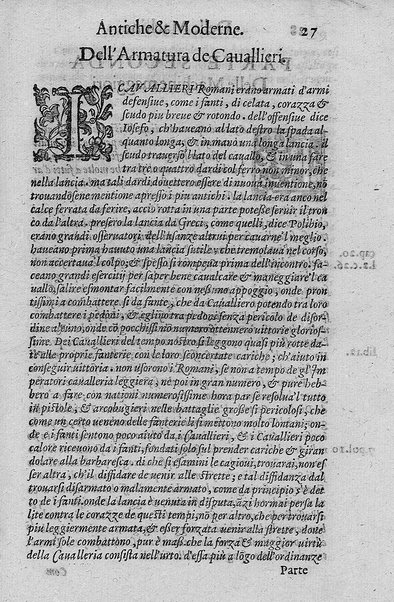 Antiche & Moderne. 27
Dell'Armatura de Cauallieri.
I CAVALLIERI Romani erano armati d'armi
defensiue, come i fanti, di celata, corazza &
scudo piu breue & rotondo. dell'offensiue dice
Iosefo, ch'haueano al lato destro la spada al-
quanto longa, & in mano una longa lancia. il
scudo trauerso l'lato del cauallo, & in una fare
tra tre o quattro dardi col ferro non minor, che
nella lancia. ma tali dardi douettero essere di nuoua inuentione, nō
trouandosene mentione apresso i piu antichi. la lancia era anco nel
calce ferrata da ferire, acciò rotta in una parte potesse seruir il tron
co da l'altra. presero la lancia da Greci, come quelli, dice Polibio,
erano grandi osseruatori dell'usanze altrui per cauarne l'meglio
haueano prima hauuto una lancia sutile, che tremolaua nel corso,
non accertaua l'colpo; & spesso si rompeua prima dell'incontro. fa-
ceano grandi esercitij per saper bene caualcare & maneggiare l'ca
uallo, salire e smontar facilmente con nessuno appoggio, onde pron
tissimi a combattere si da fante, che da Caualliero potendo tra loro
combattere i pedoni, & eglino tra pedoni senza pericolo de disor-
dine alcuno, onde cō pochissi nō numero ottennero uittorie glorios-
sime. Dei Cauallieri del tempo nostro si leggono quasi piu rotte da-
te alle proprie fanterie con le loro sconcertate cariche; ch'aiuto in
conseguir uittoria. non usorono i Romani, se non a tempo de gl'Im
peratori caualleria leggiera, nè poi in gran numero, & pure heb-
bero a fare con nationi numerosissime hora par se resolua l'tutto
in pistole, & arcobugieri nelle battaglie grosse si pericolosi, che
come un certo ueneno delle fanterie li si mettono molto lontani; on-
de e i fanti sentono poco aiuto da i Cauallieri, & i Cauallieri poco
calore riceuono da i fanti, fondati solo sul prender cariche & giran
dolare alla barbaresca. di che si esamini le cagioni, trouarai, non es
ser altra, ch'il diffidare de uenir alle strette; e tal diffidanza dal
trouarsi disarmato o malamente armato, come da principio s'è det
to de i fanti. onde la lancia è uenuta in disputa, āzi hormai persa la
lite contra le corazze de questi tempi; nō per altro, che per trouarsi
piu leggiermente armata, & esser forzata uenir alla strette, doue
l'armi sole combattono, pur è massima, che la forza & maggior uirtù
della Caualleria consista nell'urto. d'essa più a lōgo dell'ordinanze
Parte
cap. 20.
l. 3. c. 26.
lib. 12.